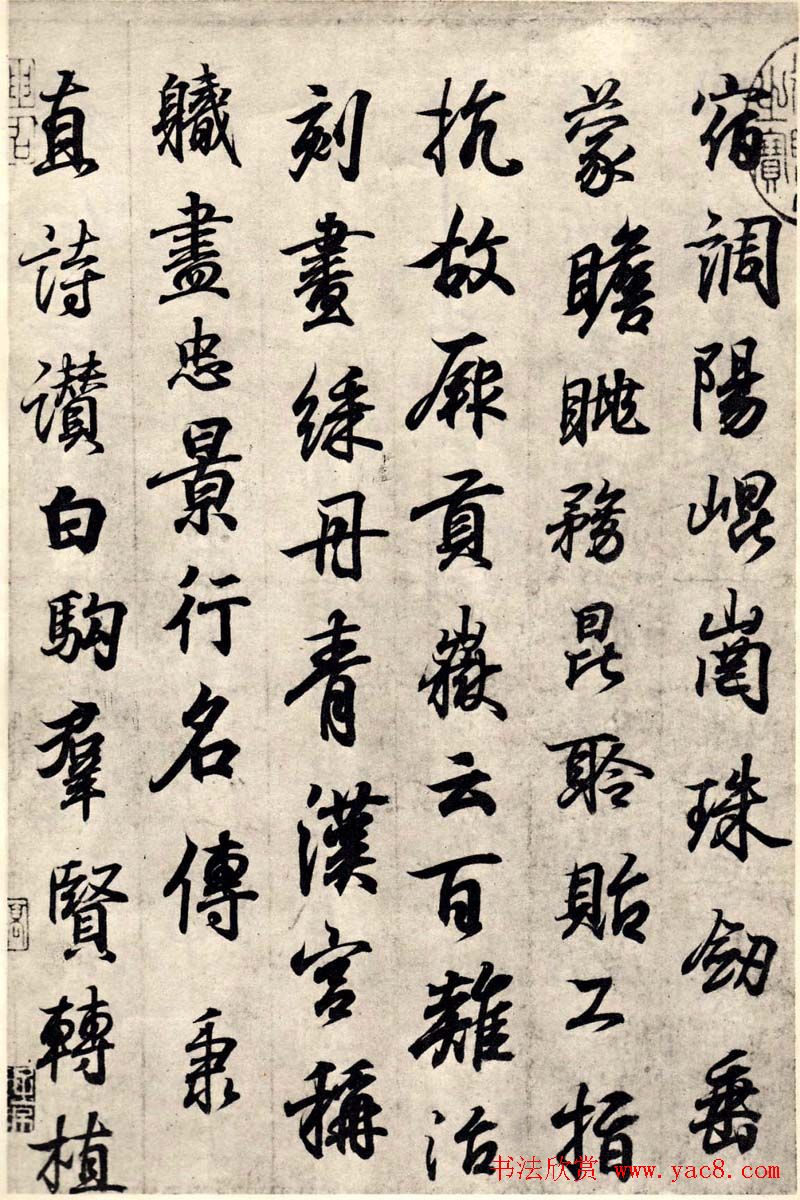 宿調陽崐崗珠劒垂
蒙瞻眺務昆聆貽工指
抗故厥貢嶽云百難治
刻畫綵丹青漢宮稱
軄盡忠景行名傳秉
直詩讃白駒羣賢轉植
书法欣赏 www.yac8.com